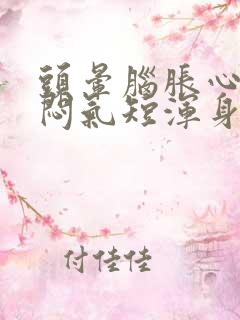 頭暈腦脹心
悶氣短渾身
付佳佳